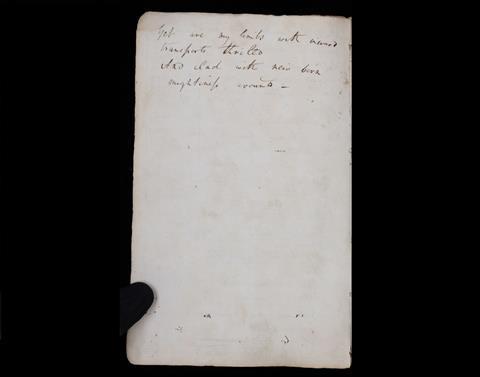 Yet are my limbs with inward
transports thrilled
And clad with new born
mightiness around –